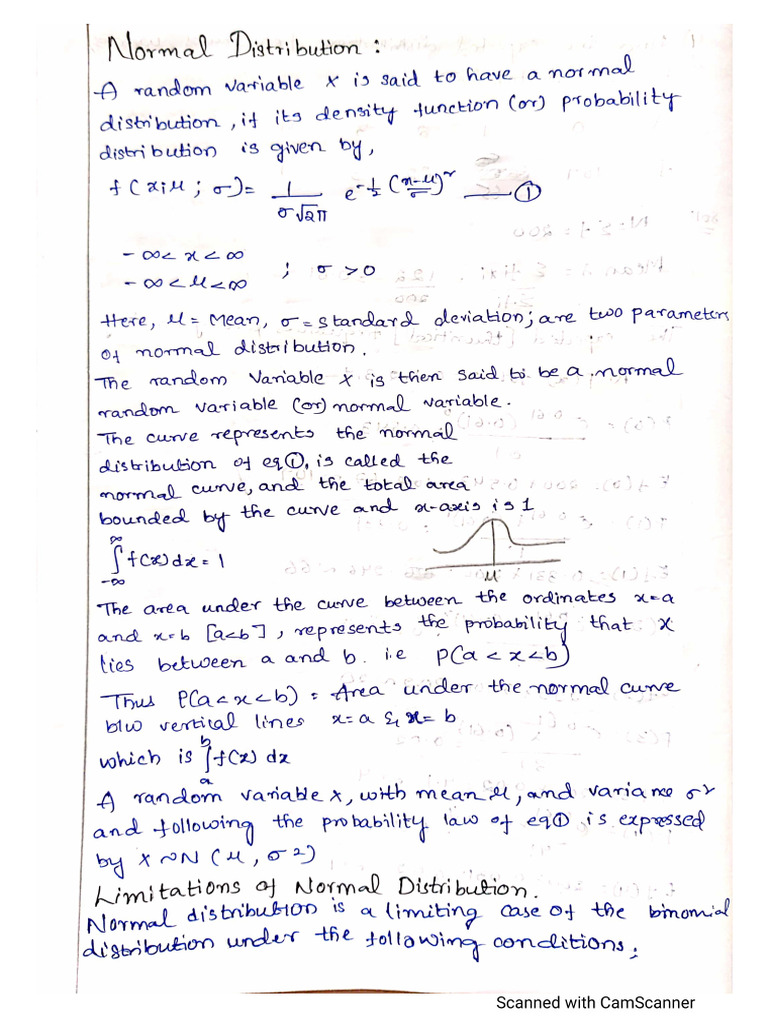 Normal Distribution:
A random variable X is said to have a normal
distribution, if its density function (or) probability
distribution is given by,
f(x; μ; σ) = 1/(σ√2π) e^-½((x-μ)/σ)² —— ①
-∞ < x < ∞
-∞ < μ < ∞ ; σ > 0
Here, μ = Mean, σ = standard deviation; are two parameters
of normal distribution.
The random variable X is then said to be a normal
random variable (or) normal variable.
The curve represents the normal
distribution of eq①, is called the
normal curve, and the total area
bounded by the curve and x-axis is 1
∫_{-∞}^{∞} f(x) dx = 1
μ
The area under the curve between the ordinates x=a
and x=b [a<b], represents the probability that X
lies between a and b. i.e P(a < x < b)
Thus P(a < x < b) = Area under the normal curve
b/w vertical lines x=a & x=b
which is ∫_a^b f(x) dx
A random variable X, with mean μ, and variance σ²
and following the probability law of eq① is expressed
by X ~ N(μ, σ²)
Limitations of Normal Distribution.
Normal distribution is a limiting case of the binomial
distribution under the following conditions;
Scanned with CamScanner